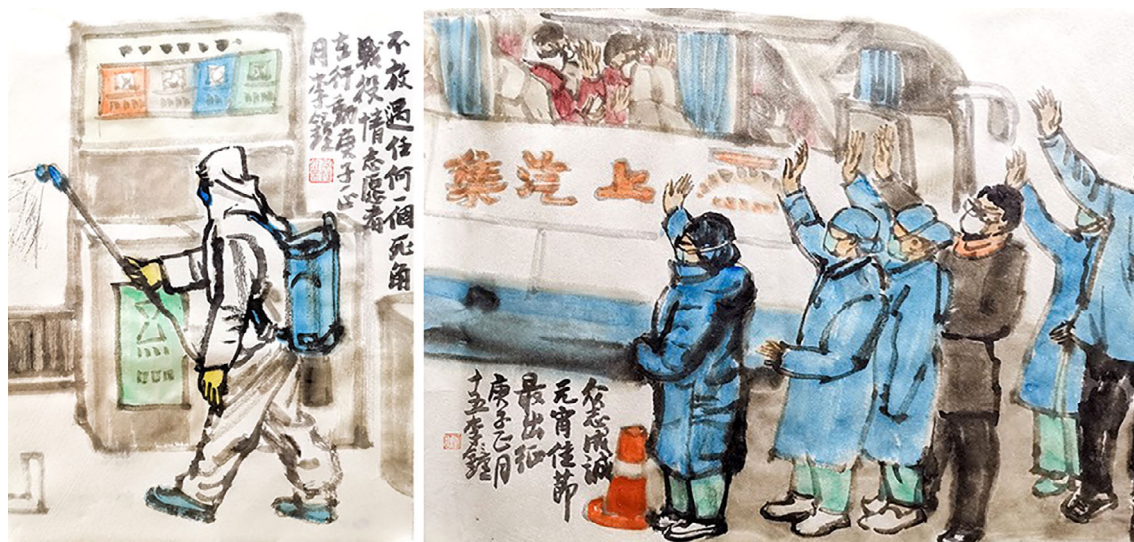 不放過任何一個死角
戰役情志愿者
在行動庚子正
月李鐘
上
众志成誠
元宵佳節
最出征
庚子正月
十五李鐘